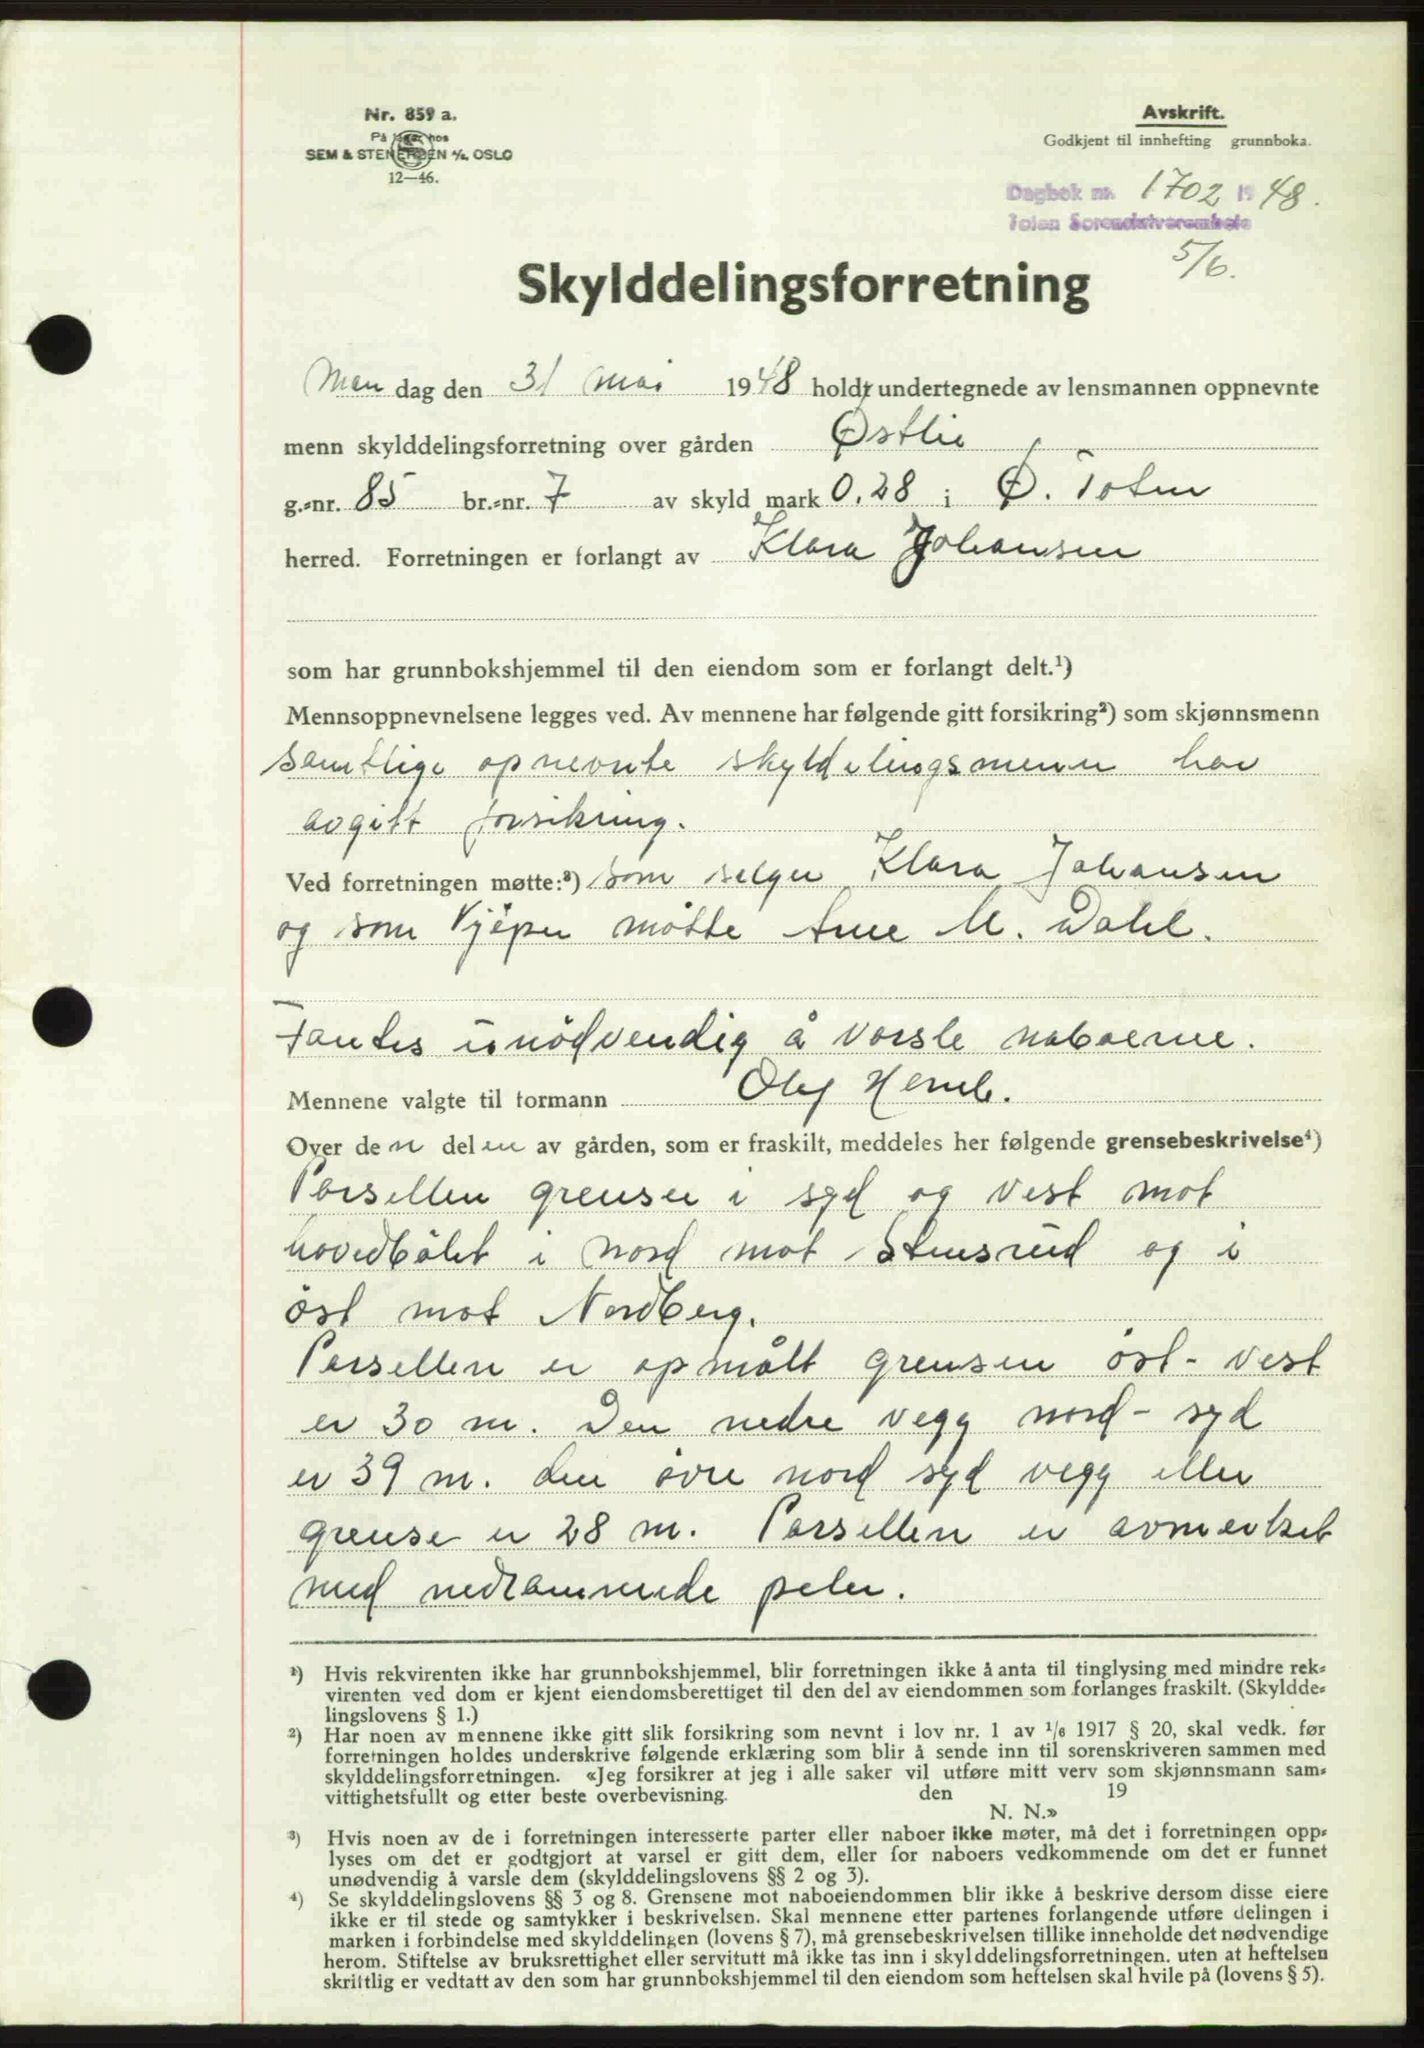 Nr. 859 a.
På lager hos
SEM & STENERSEN A/S OSLO
12—46.
Avskrift.
Godkjent til innhefting grunnboka.
Dagbok nr. 1702 19 48.
Toten Sorenskriverembete
5/6.
Skylddelingsforretning
Man dag den 31 mai 1948 holdt undertegnede av lensmannen oppnevnte
menn skylddelingsforretning over gården Østlie
g.=nr. 85 br.=nr. 7 av skyld mark 0.28 i Ø. Toten
herred. Forretningen er forlangt av Klara Johansen
som har grunnbokshjemmel til den eiendom som er forlangt delt.¹)
Mennsoppnevnelsene legges ved. Av mennene har følgende gitt forsikring²) som skjønnsmenn
samtlige opnevnte skyldelingsmenn har
avgitt forsikring.
Ved forretningen møtte:³) som selger Klara Johansen
og som kjøper møtte Ane M. Dahl.
Fantes unødvendig å varsle naboerne.
Mennene valgte til formann Olaf
Over den delen av gården, som er fraskilt, meddeles her følgende grensebeskrivelse⁴)
Parsellen grenser i syd og vest mot
hovedbølet i nord mot Stensrud og i
øst mot Nordberg.
Parsellen er opmålt grensen øst - vest
er 30 m. Den nedre vegg nord - syd
er 39 m. den øvre nord syd vegg eller
grense er 28 m. Parsellen er avmerket
med nedrammede peler.
¹) Hvis rekvirenten ikke har grunnbokshjemmel, blir forretningen ikke å anta til tinglysing med mindre rek=
virenten ved dom er kjent eiendomsberettiget til den del av eiendommen som forlanges fraskilt. (Skyldde=
lingslovens § 1.)
²) Har noen av mennene ikke gitt slik forsikring som nevnt i lov nr. 1 av ¹/₆ 1917 § 20, skal vedk. før
forretningen holdes underskrive følgende erklæring som blir å sende inn til sorenskriveren sammen med
skylddelingsforretningen. «Jeg forsikrer at jeg i alle saker vil utføre mitt verv som skjønnsmann sam=
vittighetsfullt og etter beste overbevisning. den 19
N. N.»
³) Hvis noen av de i forretningen interesserte parter eller naboer ikke møter, må det i forretningen opp=
lyses om det er godtgjort at varsel er gitt dem, eller for naboers vedkommende om det er funnet
unødvendig å varsle dem (skylddelingslovens §§ 2 og 3).
⁴) Se skylddelingslovens §§ 3 og 8. Grensene mot naboeiendommen blir ikke å beskrive dersom disse eiere
ikke er til stede og samtykker i beskrivelsen. Skal mennene etter partenes forlangende utføre delingen i
marken i forbindelse med skylddelingen (lovens § 7), må grensebeskrivelsen tillike inneholde det nødvendige
herom. Stiftelse av bruksrettighet eller servitutt må ikke tas inn i skylddelingsforretningen. uten at heftelsen
skriftlig er vedtatt av den som har grunnbokshjemmel til den eiendom som heftelsen skal hvile på (lovens § 5).